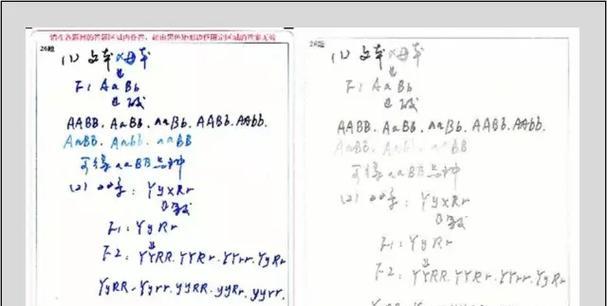 请在各题目的答题区域内作答，超出黑色矩形边框限定区域的答案无效
26题
(1) 父本×母本
↓
F1 AaBb
AABB. AaBB. aaBb. AABb. AAbb.
AaBB. Aabb. aaBB
可得aaBB品种
(2) YyxRr
F1: YyRr
↓
F2: YYRR. YYRr. YYrr. YyRr
YyRR. Yyrr. yyRR. yyRr. yyrr.
26题
(1) 父本×母本
↓
F1 AaBb
AABB. AaBB. aaBb. AABb. AAbb.
AaBB. Aabb. aaBB
可得aaBB品种
(2) YyxRr
F1: YyRr
↓
F2: YYRR. YYRr. YYrr. YyRr